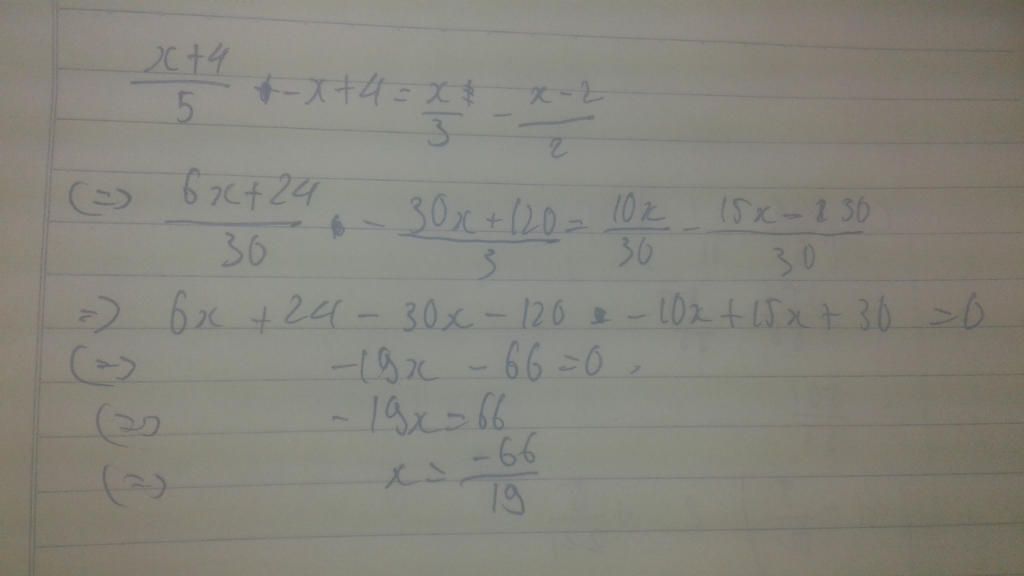 (x+4)/5 - x + 4 = x/3 - (x-2)/2
(=>) (6x+24)/30 - (30x+120)/3 = 10x/30 - (15x-30)/30
=> 6x + 24 - 30x - 120 - 10x + 15x + 30 = 0
(=>) -19x - 66 = 0
(=>) -19x = 66
(=>) x = -66/19